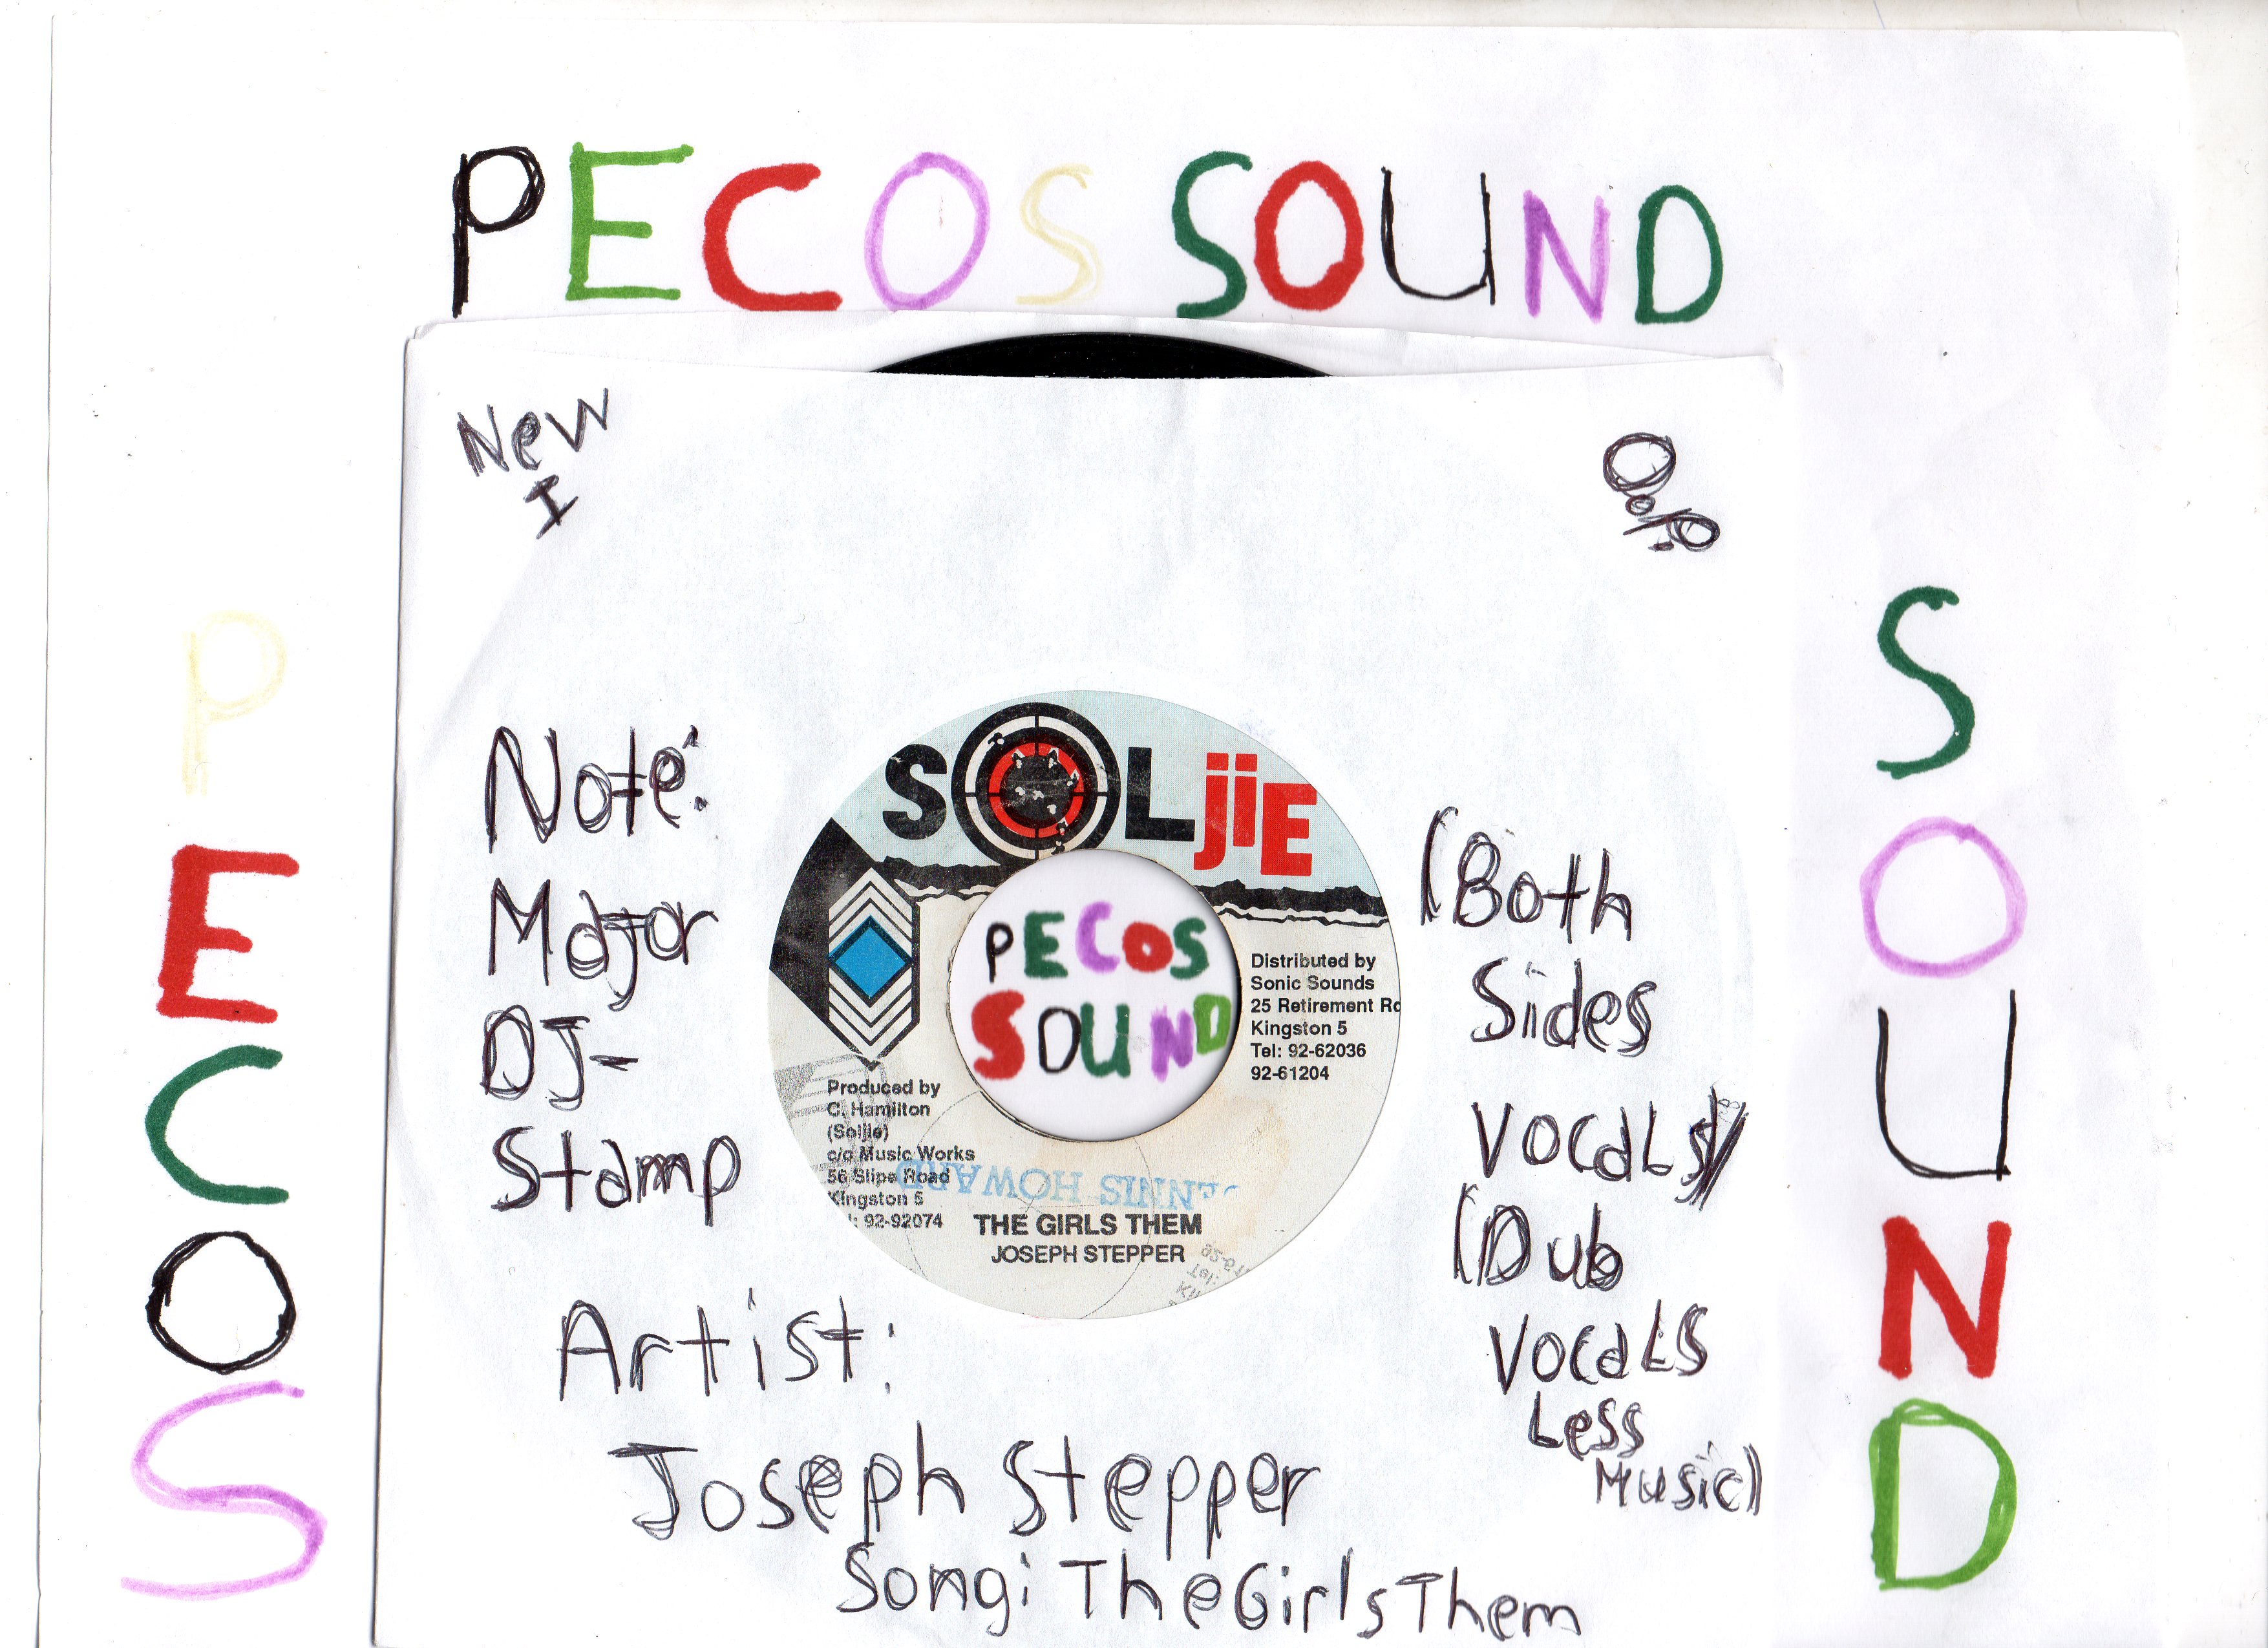 PECOS SOUND
New
I
O.P.
PECOS
SOUND
Note:
Major
DJ-
Stamp
SOLjiE
PECOS
SOUND
Distributed by
Sonic Sounds
25 Retirement Rd
Kingston 5
Tel: 92-62036
92-61204
Produced by
C. Hamilton
(Soljie)
c/o Music Works
56 Slipe Road
Kingston 5
: 92-92074
ENNIS HOWARD
THE GIRLS THEM
JOSEPH STEPPER
(Both
Sides
VocaLs/
(Dub
VocaLS
Less
Music)
Artist:
Joseph Stepper
Song: The Girls Them